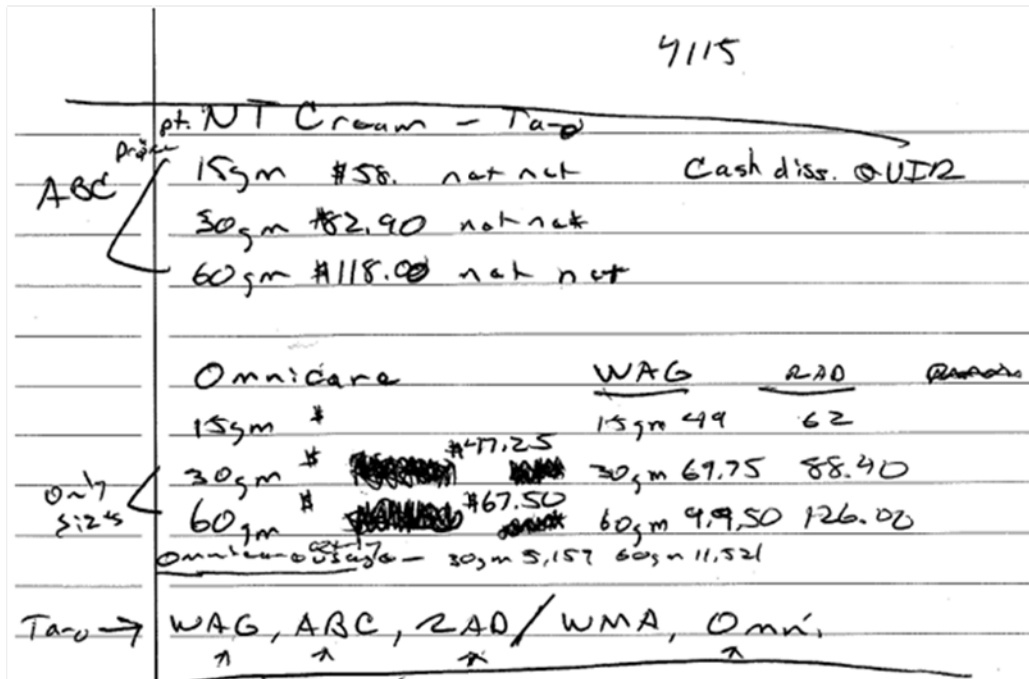 4115
pt. NT Cream - Taro
ABC
15gm $58. net net Cash disc. QUIR
30gm $82.90 net net
60gm $118.00 net net
Omnicare WAG RAD
15gm $ 15gm 49 62
30gm $ $47.25 30gm 69.75 88.40
Only sizes
60gm $ $67.50 60gm 99.50 126.00
Omnicare usage - 30gm 5,157 60gm 11,521
Taro → WAG, ABC, RAD/WMA, Omni,